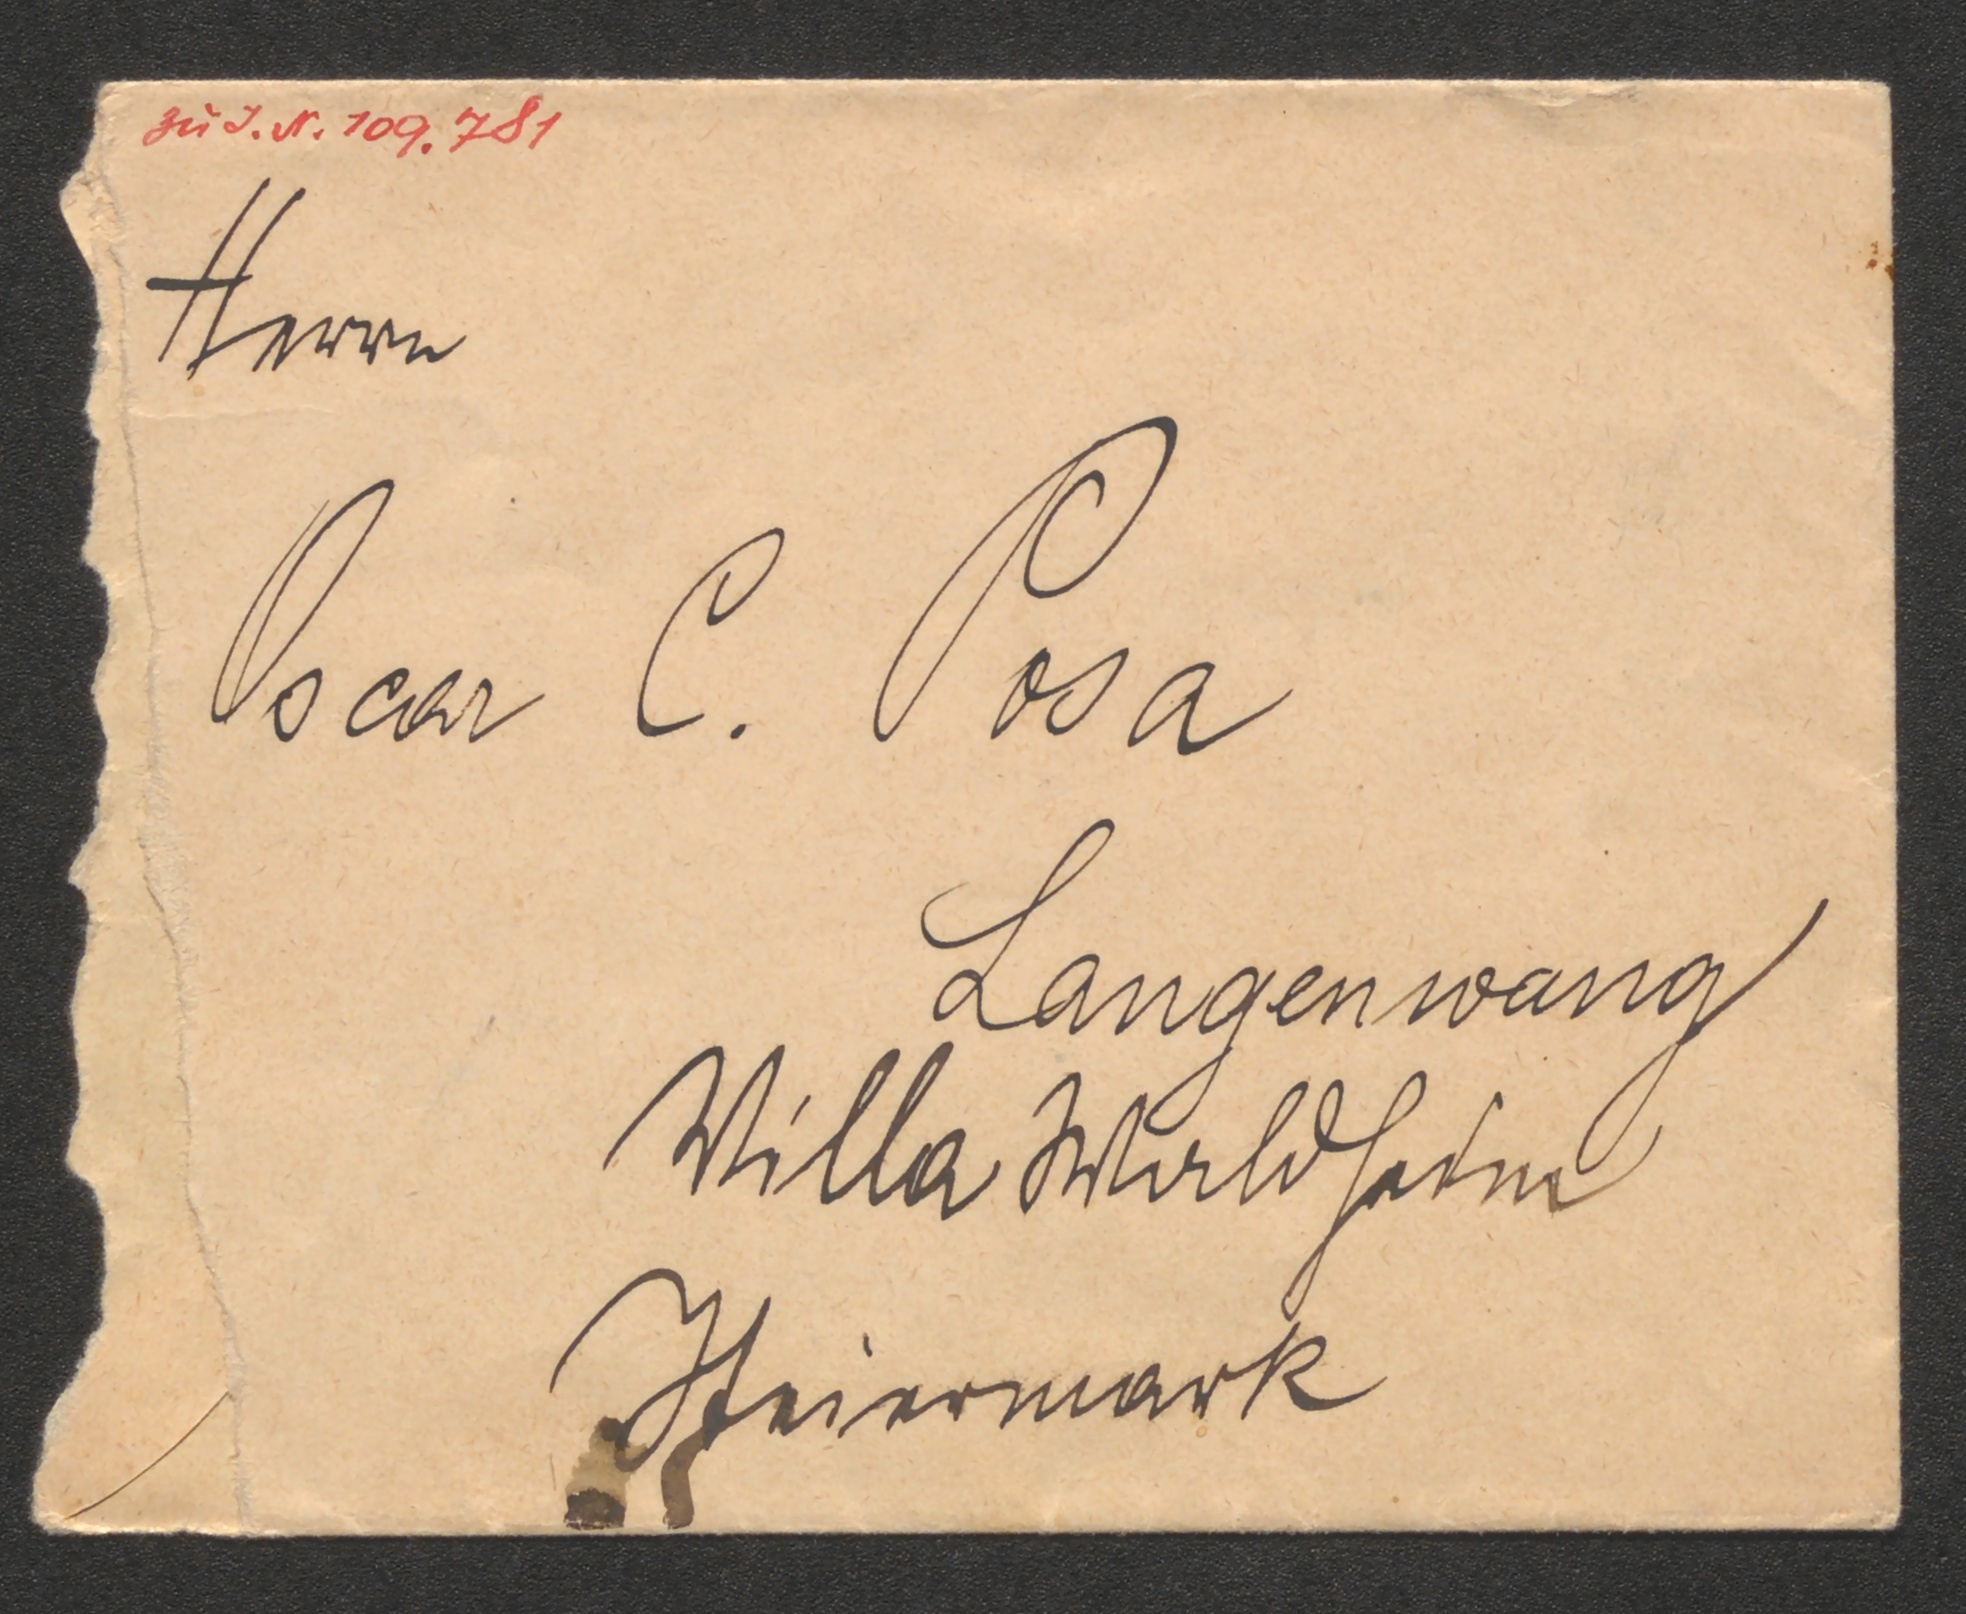 zu I.N. 109.781
Herrn
Oscar C. Posa
Langenwang
Villa Waldheim
Steiermark